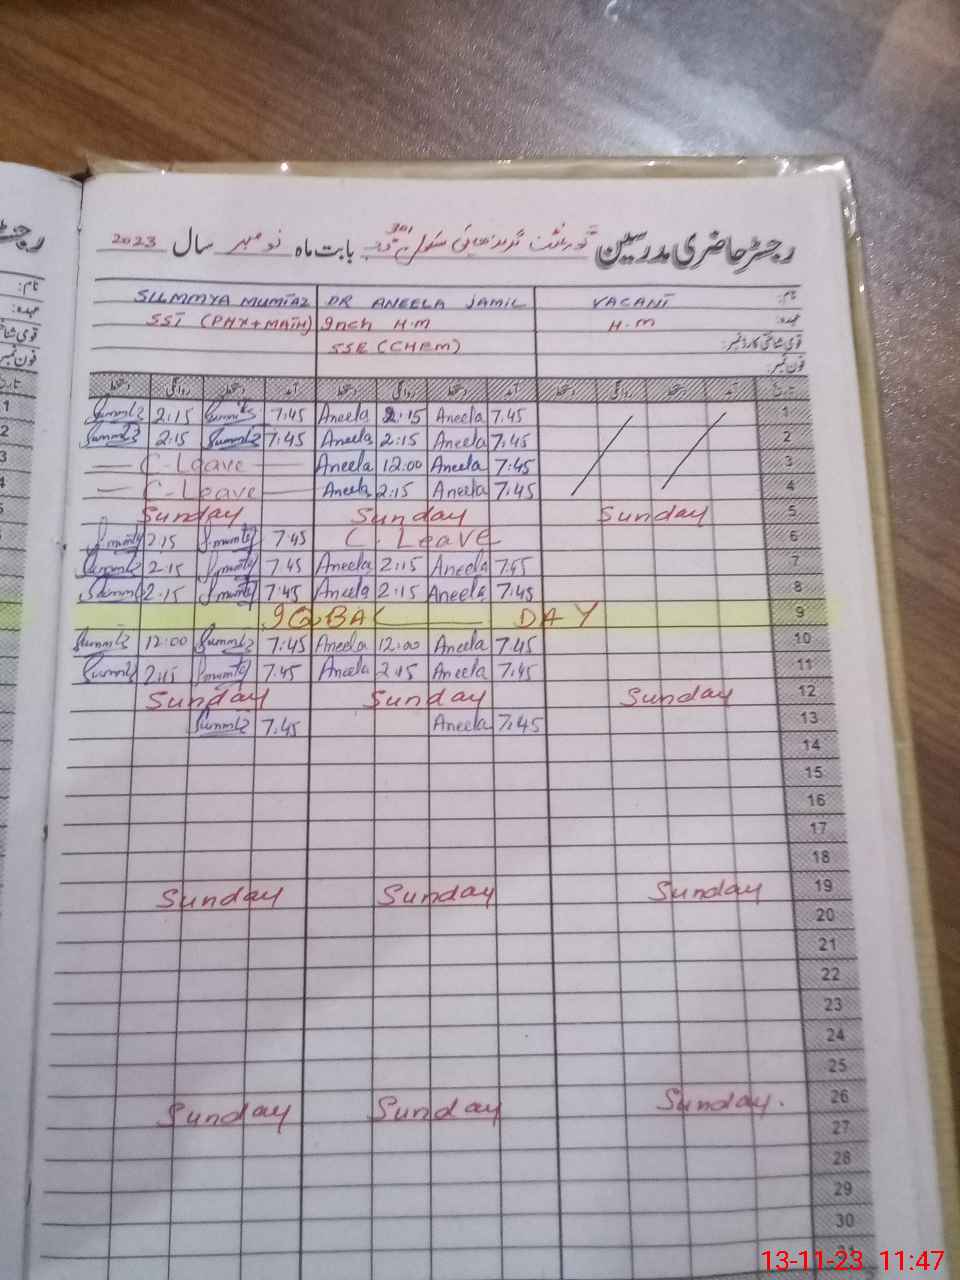 رجسٹر حاضری مدرسین گورنمنٹ گرلز ہائی سکول بابت ماہ نومبر سال 2023
نام: VACANT DR ANEELA JAMIL SUMMYA MUMTAZ
عہدہ: H.M Inch H.M SST (PHY+MATH)
قومی شناختی کارڈ نمبر: SSE (CHEM)
فون نمبر:
تاریخ آمد دستخط روانگی دستخط آمد دستخط روانگی دستخط آمد دستخط روانگی دستخط
1 7.45 Aneela 2:15 Aneela 7.45 2:15
2 7.45 Aneela 2:15 Aneela 7.45 2:15
3 7.45 Aneela 12:00 Aneela C-Leave
4 7.45 Aneela 2:15 Aneela C-Leave
5 Sunday Sunday Sunday
6 C. Leave 7.45 2:15
7 7.45 Aneela 2:15 Aneela 7.45 2:15
8 7.45 Aneela 2:15 Aneela 7.45 2:15
9 IQBAL DAY
10 7.45 Aneela 12:00 Aneela 7.45 12:00
11 7.45 Aneela 2:15 Aneela 7.45 2:15
12 Sunday Sunday Sunday
13 7.45 Aneela 7.45
14
15
16
17
18
19 Sunday Sunday Sunday
20
21
22
23
24
25
26 Sunday Sunday Sunday.
27
28
29
30
31
13-11-23 11:47